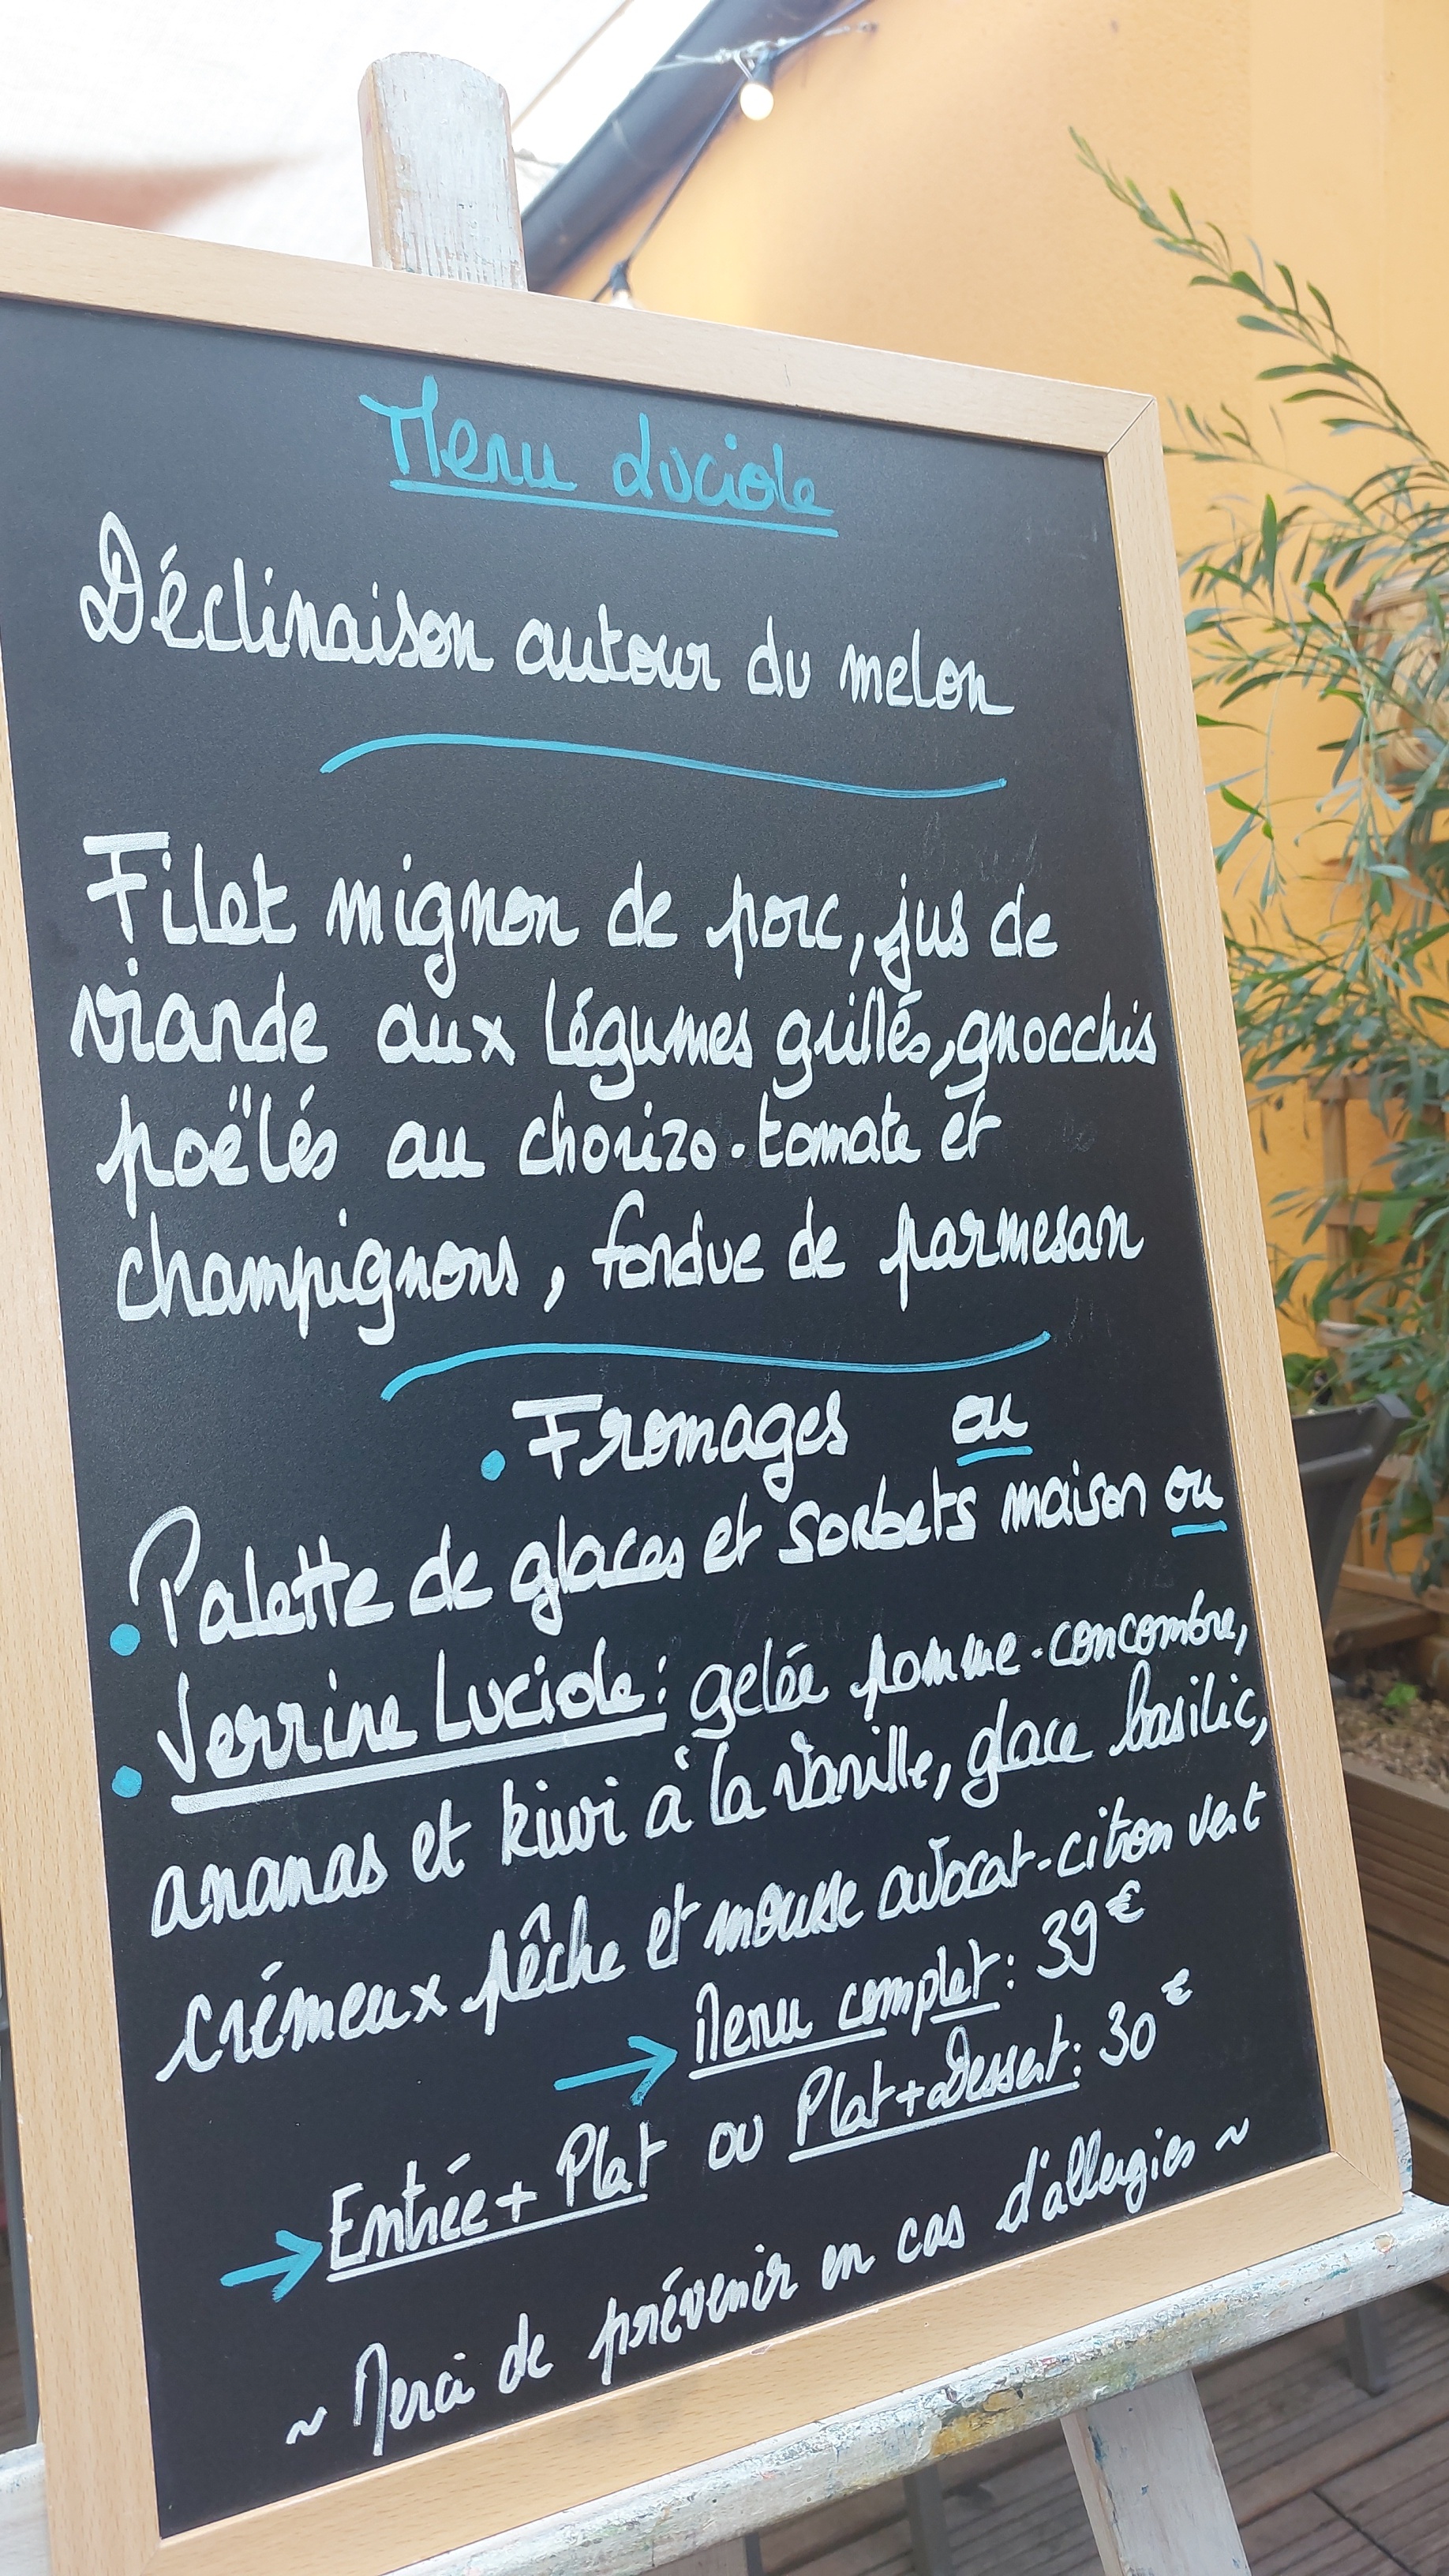 Menu Luciole
Déclinaison autour du melon
Filet mignon de porc, jus de
viande aux légumes grillés, gnocchis
poëlés au chorizo-tomate et
champignons, fondue de parmesan
• Fromages ou
• Palette de glaces et sorbets maison ou
• Verrine Luciole : gelée pomme-concombre,
ananas et kiwi à la vanille, glace basilic,
crémeux pêche et mousse avocat-citron vert
→ Menu complet : 39€
→ Entrée + Plat ou Plat + Dessert : 30€
~ Merci de prévenir en cas d'allergies ~